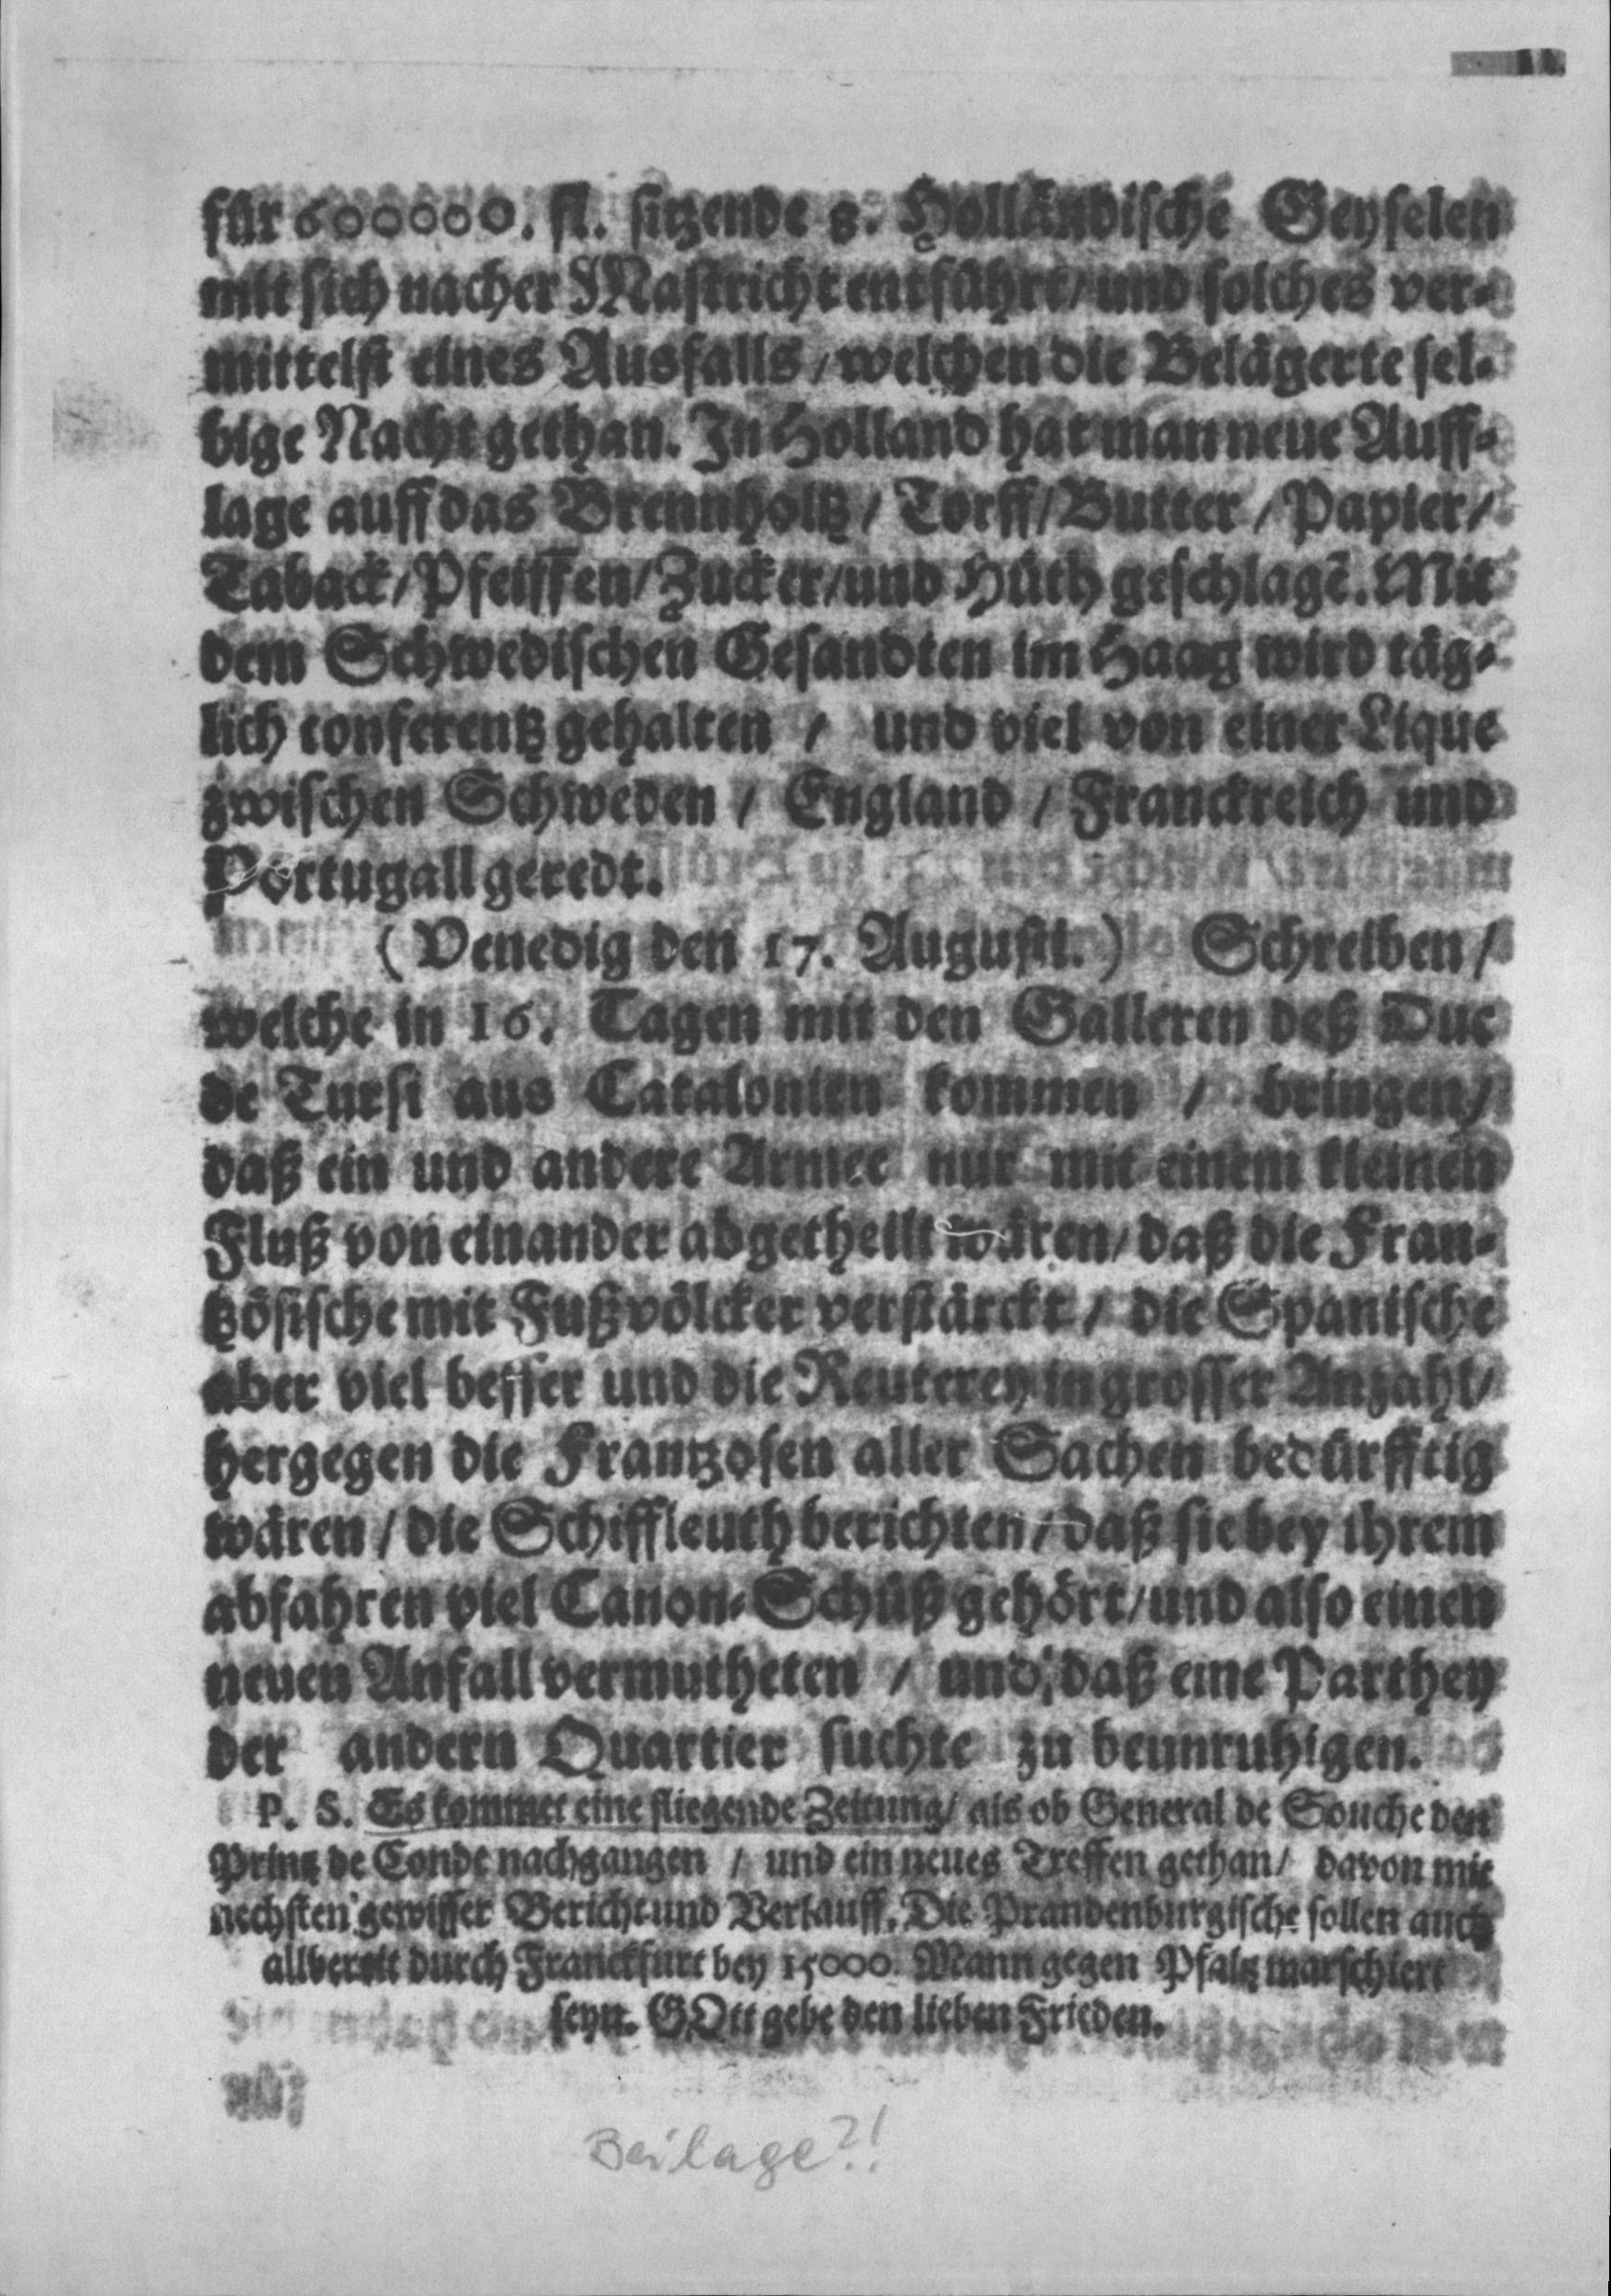 für 600000. fl. sitzende 8. Holländische Geyselen
mit sich nacher Mastricht entführt/ und solches ver-
mittelst eines Ausfalls / welchen die Belägerte sel-
bige Nacht gethan. In Holland hat man neue Auff-
lage auff das Brennholtz / Torff / Butter / Papier /
Taback / Pfeiffen / Zucker / und Hüth geschlagẽ. Mit
dem Schwedischen Gesandten im Haag wird täg-
lich conferentz gehalten / und viel von einer Lique
zwischen Schweden / England / Franckreich und
Portugall geredt.
(Venedig den 17. Augusti.) Schreiben /
welche in 16. Tagen mit den Galleren deß Duc
de Tursi aus Catalonien kommen / bringen /
daß ein und andere Armee nur mit einem kleinen
Fluß von einander abgetheilt wären / daß die Fran-
tzösische mit Fußvölcker verstärckt / die Spanische
aber viel besser und die Reuterey in grosser Anzahl /
hergegen die Frantzosen aller Sachen bedürfftig
wären / die Schiffleuth berichten / daß sie bey ihrem
abfahren viel Canon-Schüß gehört / und also einen
neuen Anfall vermutheten / und daß eine Parthey
der andern Quartier suchte zu beunruhigen.
P. S. Es kommet eine fliegende Zeitung / als ob General de Souche den
Printz de Conde nachgangen / und ein neues Treffen gethan / davon mit
nechsten gewisser Bericht und Verlauff. Die Prandenburgische sollen auch
allbereit durch Franckfurt bey 15000. Mann gegen Pfaltz marschiert
seyn. GOtt gebe den lieben Frieden.
Beilage?!